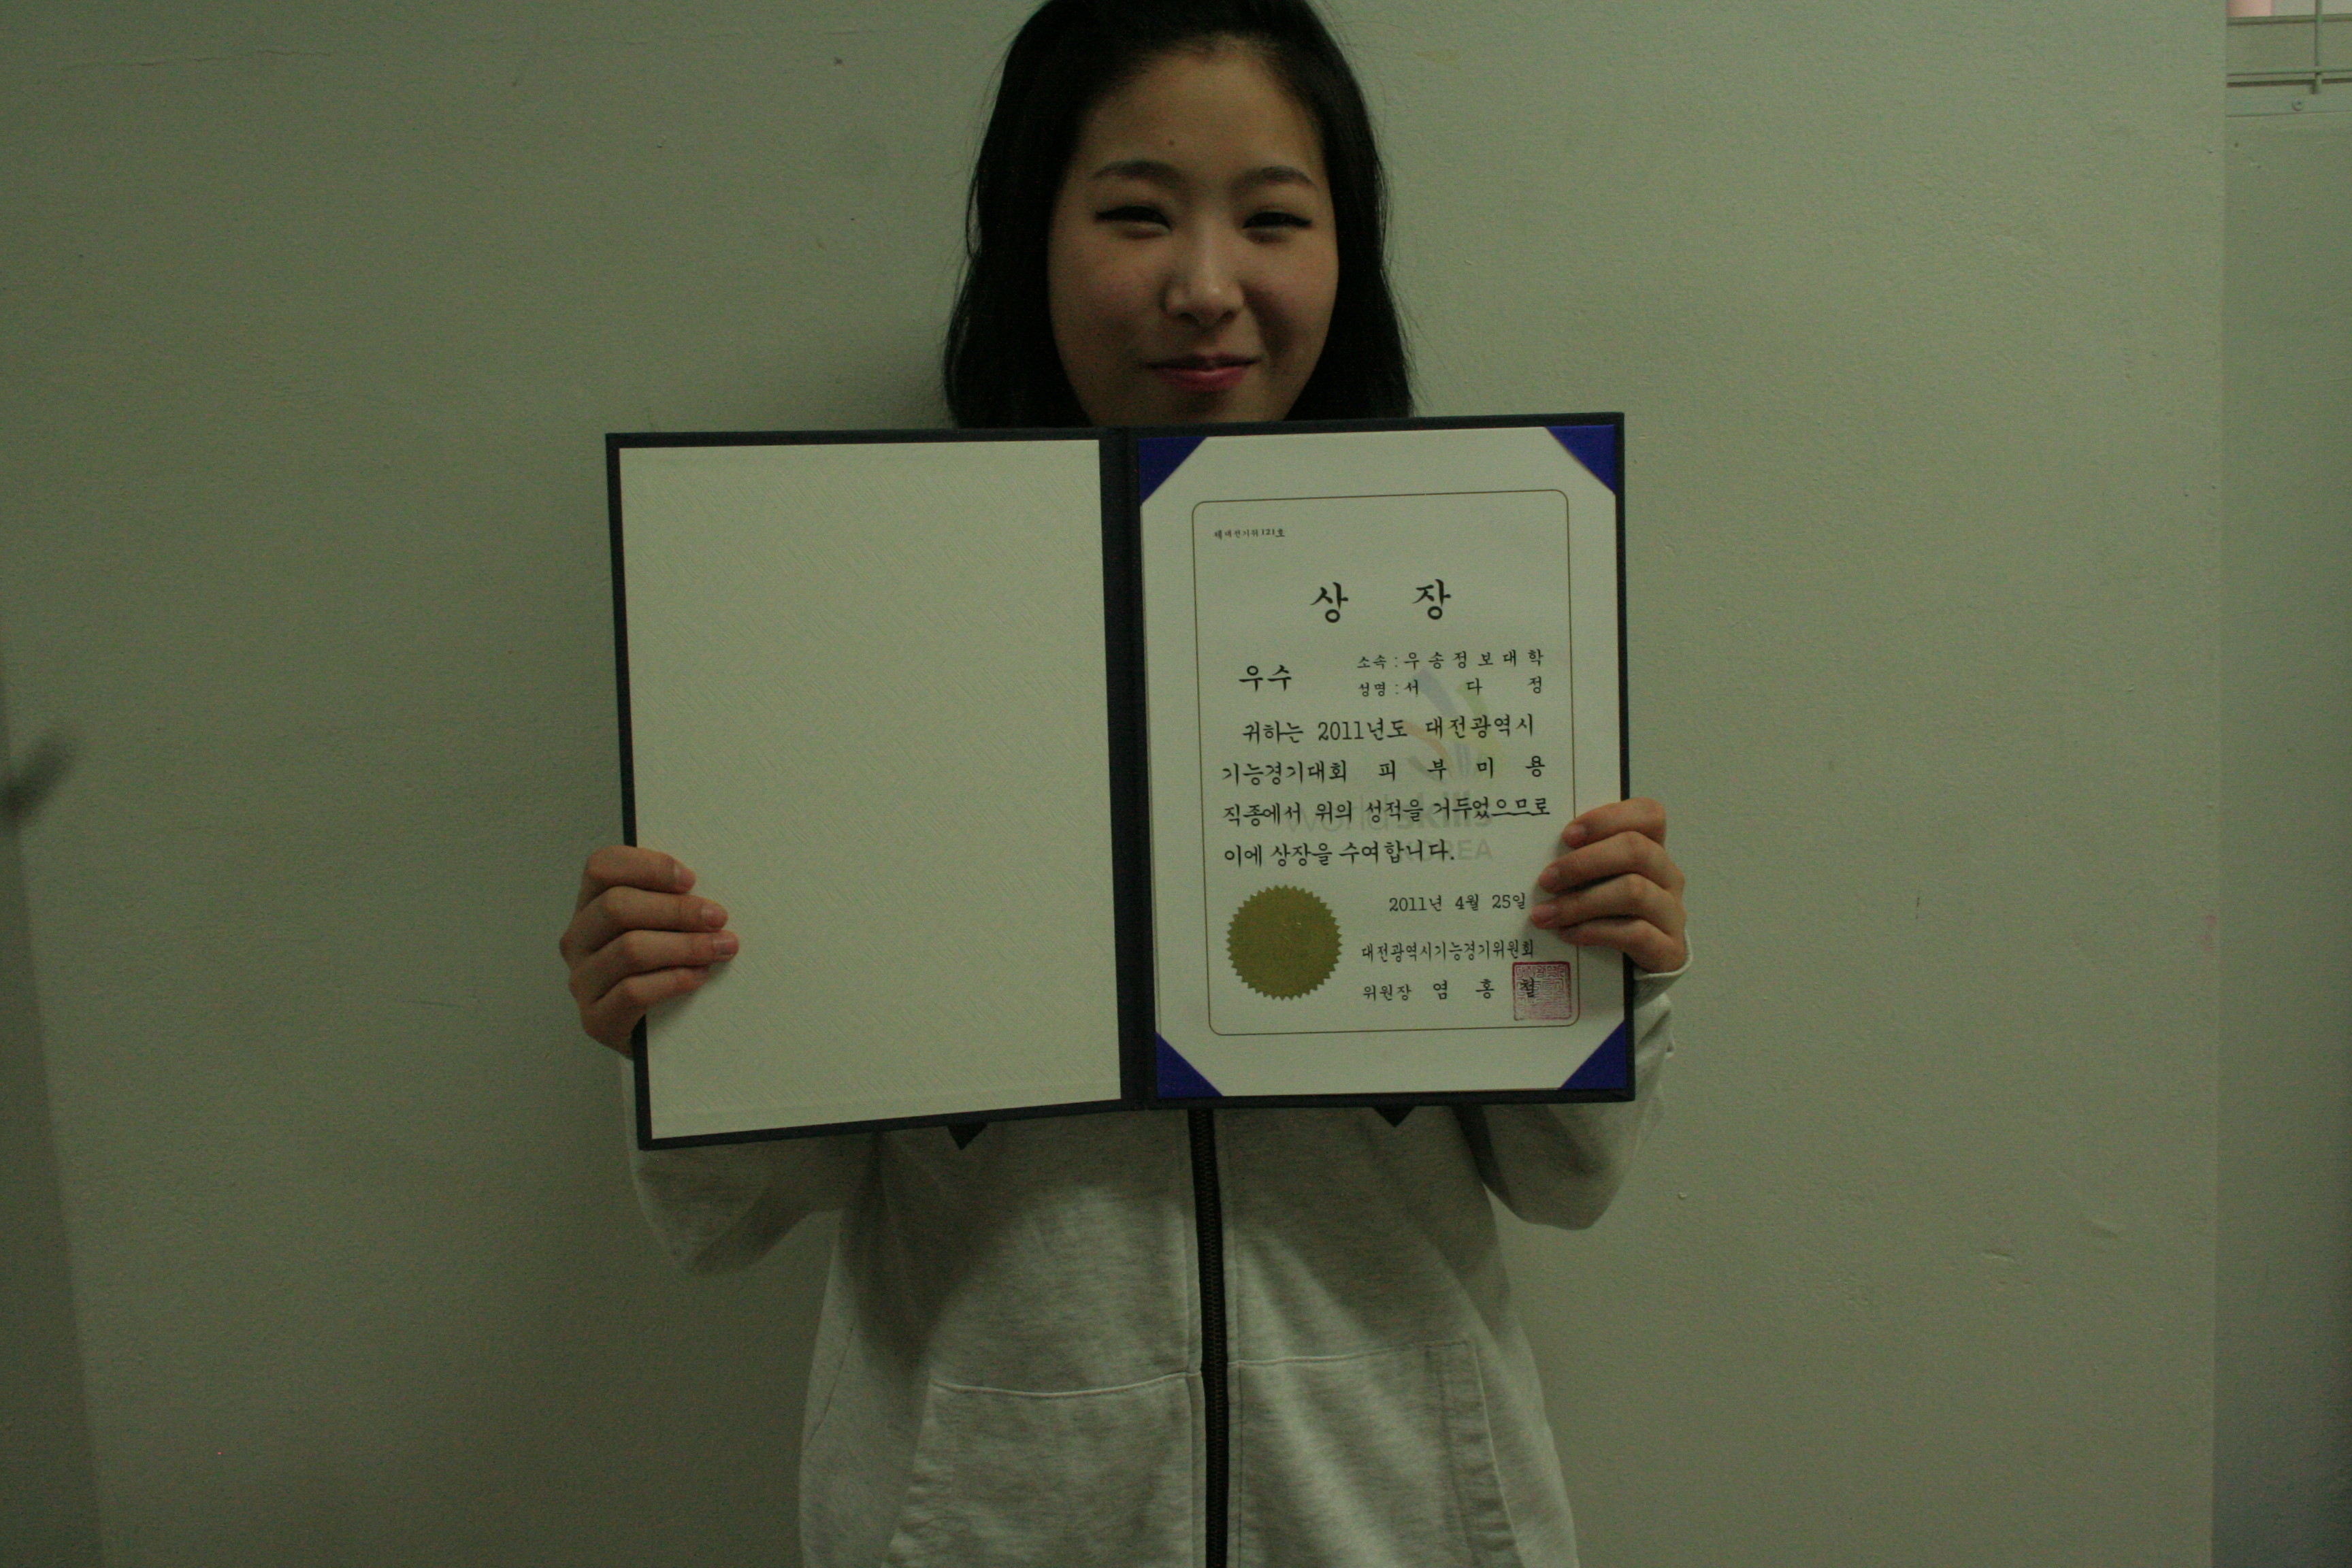 제대전기위121호
상 장
우수
소속 : 우 송 정 보 대 학
성명 : 서 다 정
귀하는 2011년도 대전광역시
기능경기대회 피 부 미 용
직종에서 위의 성적을 거두었으므로
이에 상장을 수여합니다.
2011년 4월 25일
대전광역시기능경기위원회
위원장 염 홍 철
worldskills
KOREA